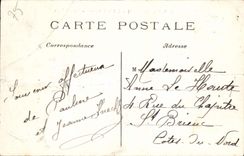 CARTE POSTALE
Correspondance
Adresse
Souvenir affectueux
de Pauline
et Jeanne
Mademoiselle
Anne Le
4 Rue du Chapitre
St Brieuc
Côtes du Nord